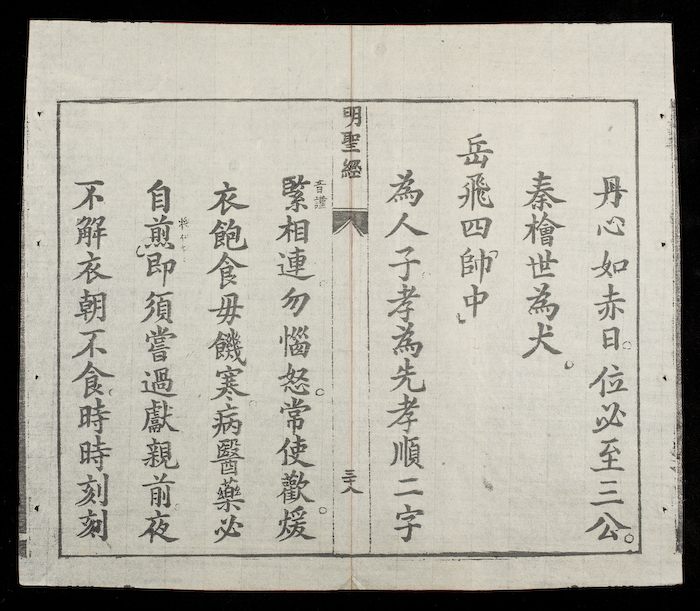 丹心如赤日。位必至三公。
秦檜世為犬。
岳飛四帥中
為人子孝為先孝順二字
明聖經
三十八
緊相連。勿惱怒。常使歡。煖
音謹
衣飽食毋饑寒。病醫藥必
自煎即須嘗過獻親前。夜
不解衣朝不食。時時刻刻